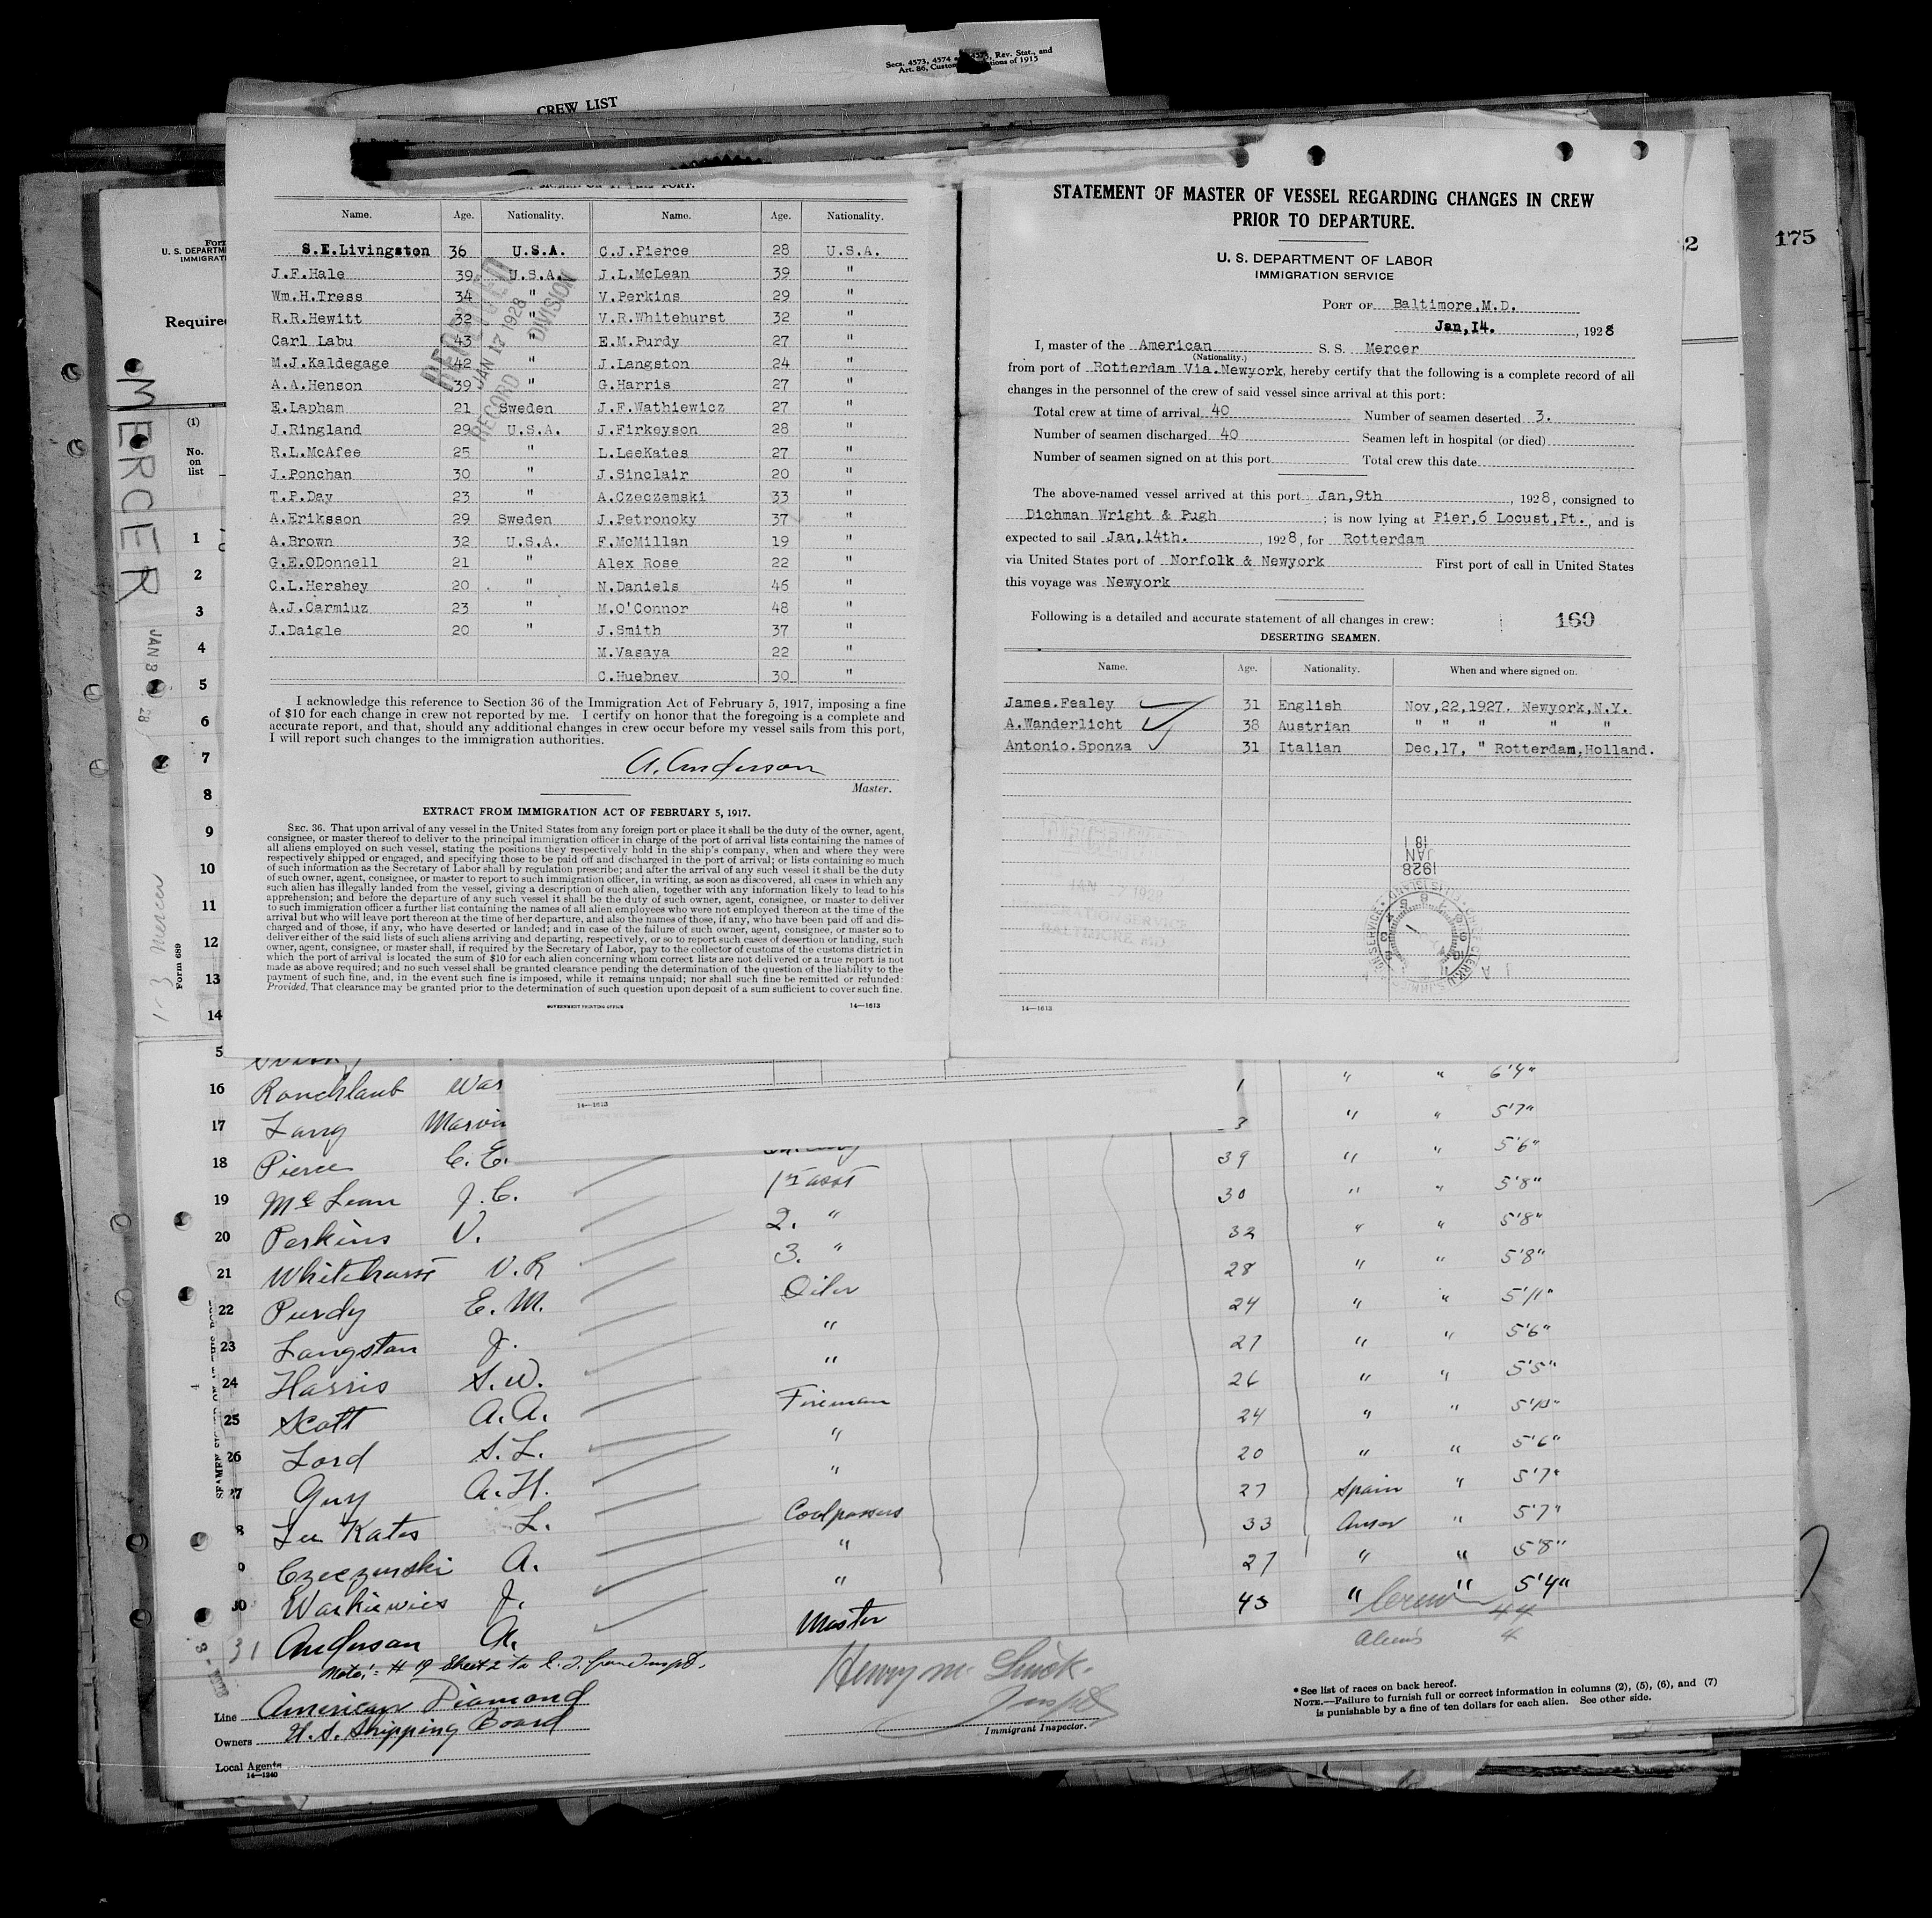 Secs. 4573, 4574 Rev. Stat., and
Art. 86, Custom tions of 1915
CREW LIST
Name. Age. Nationality. Name. Age. Nationality.
S.E.Livingston 36 U.S.A. C.J.Pierce 28 U.S.A.
J.F.Hale 39 U.S.A. J.L.McLean 39 "
Wm.H.Tress 34 " V.Perkins 29 "
R.R.Hewitt 32 " V.R.Whitehurst 32 "
Carl Labu 43 " E.M.Purdy 27 "
M.J.Kaldegage 42 " J.Langston 24 "
A.A.Henson 39 " G.Harris 27 "
E.Lapham 21 Sweden J.F.Wathiewicz 27 "
J.Ringland 29 U.S.A. J.Firkeyson 28 "
R.L.McAfee 25 " L.LeeKates 27 "
J.Ponchan 30 " J.Sinclair 20 "
T.P.Day 23 " A.Czeczemski 33 "
A.Eriksson 29 Sweden J.Petronoky 37 "
A.Brown 32 U.S.A. F.McMillan 19 "
G.E.ODonnell 21 " Alex Rose 22 "
C.L.Hershey 20 " N.Daniels 46 "
A.J.Carmiuz 23 " M.O'Connor 48 "
J.Daigle 20 " J.Smith 37 "
M.Vasaya 22 "
C.Huebnev 30 "
JAN 17 1928
RECORD DIVISION
I acknowledge this reference to Section 36 of the Immigration Act of February 5, 1917, imposing a fine
of $10 for each change in crew not reported by me. I certify on honor that the foregoing is a complete and
accurate report, and that, should any additional changes in crew occur before my vessel sails from this port,
I will report such changes to the immigration authorities.
A. Anderson
Master.
EXTRACT FROM IMMIGRATION ACT OF FEBRUARY 5, 1917.
SEC. 36. That upon arrival of any vessel in the United States from any foreign port or place it shall be the duty of the owner, agent,
consignee, or master thereof to deliver to the principal immigration officer in charge of the port of arrival lists containing the names of
all aliens employed on such vessel, stating the positions they respectively hold in the ship's company, when and where they were
respectively shipped or engaged, and specifying those to be paid off and discharged in the port of arrival; or lists containing so much
of such information as the Secretary of Labor shall by regulation prescribe; and after the arrival of any such vessel it shall be the duty
of such owner, agent, consignee, or master to report to such immigration officer, in writing, as soon as discovered, all cases in which any
such alien has illegally landed from the vessel, giving a description of such alien, together with any information likely to lead to his
apprehension; and before the departure of any such vessel it shall be the duty of such owner, agent, consignee, or master to deliver
to such immigration officer a further list containing the names of all alien employees who were not employed thereon at the time of the
arrival but who will leave port thereon at the time of her departure, and also the names of those, if any, who have been paid off and dis-
charged and of those, if any, who have deserted or landed; and in case of the failure of such owner, agent, consignee, or master so to
deliver either of the said lists of such aliens arriving and departing, respectively, or so to report such cases of desertion or landing, such
owner, agent, consignee, or master shall, if required by the Secretary of Labor, pay to the collector of customs of the customs district in
which the port of arrival is located the sum of $10 for each alien concerning whom correct lists are not delivered or a true report is not
made as above required; and no such vessel shall be granted clearance pending the determination of the question of the liability to the
payment of such fine, and, in the event such fine is imposed, while it remains unpaid; nor shall such fine be remitted or refunded:
Provided, That clearance may be granted prior to the determination of such question upon deposit of a sum sufficient to cover such fine.
GOVERNMENT PRINTING OFFICE 14—1613
STATEMENT OF MASTER OF VESSEL REGARDING CHANGES IN CREW
PRIOR TO DEPARTURE.
U. S. DEPARTMENT OF LABOR
IMMIGRATION SERVICE
PORT OF Baltimore,M.D.
Jan,14. , 1928
I, master of the American S. S. Mercer
(Nationality.)
from port of Rotterdam Via.Newyork, hereby certify that the following is a complete record of all
changes in the personnel of the crew of said vessel since arrival at this port:
Total crew at time of arrival 40 Number of seamen deserted 3.
Number of seamen discharged 40 Seamen left in hospital (or died)
Number of seamen signed on at this port Total crew this date
The above-named vessel arrived at this port Jan,9th , 1928, consigned to
Dichman Wright & Pugh ; is now lying at Pier,6 Locust,Pt., and is
expected to sail Jan,14th. , 1928, for Rotterdam
via United States port of Norfolk & Newyork First port of call in United States
this voyage was Newyork
Following is a detailed and accurate statement of all changes in crew: 169
DESERTING SEAMEN.
Name. Age. Nationality. When and where signed on.
James.Fealey 31 English Nov,22,1927. Newyork,N.Y.
A.Wanderlicht 38 Austrian " " " " "
Antonio.Sponza 31 Italian Dec,17, " Rotterdam,Holland.
JAN 17 1928
IMMIGRATION SERVICE
BALTIMORE, MD.
1928
JAN
18
14—1613
2 175
Form
U. S. DEPARTM
IMMIGRATI
Require
(1)
No.
on
list
MERCER
JAN 3 28
1-3 Mercer
Form 689
1
2
3
4
5
6
7
8
9
10
11
12
13
14
14—1613
5 1 " " 6'4"
16 Ronchlaub War 3 " " 5'7"
17 Lang Marvin
18 Pierce C. E. 39 " " 5'6"
19 McLean J.C. 1st asst 30 " " 5'8"
20 Perkins V. 2. " 32 " " 5'8"
21 Whitehurst V.R 3. " 28 " " 5'8"
22 Purdy E.M. Oiler 24 " " 5'11"
23 Langston J. " 27 " " 5'6"
24 Harris S.W. " 26 " " 5'5"
25 Scott A.A. Fireman 24 " " 5'10"
26 Lord S.L. " 20 " " 5'6"
27 Guy A.H. " 27 Spain " 5'7"
8 Lee Kates L. Coalpassers 33 " 5'7"
9 Czeczenski A. " 27 " " 5'8"
30 Warkiewics J. "
31 Anderson A. Master 43 " " 5'4"
Crew 44
Aliens 4
Note: # 19 Sheet 2
Line American Diamond
Owners U.S. Shipping Board
Local Agents
14—1240
Henry M.
Immigrant Inspector.
*See list of races on back hereof.
NOTE.—Failure to furnish full or correct information in columns (2), (5), (6), and (7)
is punishable by a fine of ten dollars for each alien. See other side.